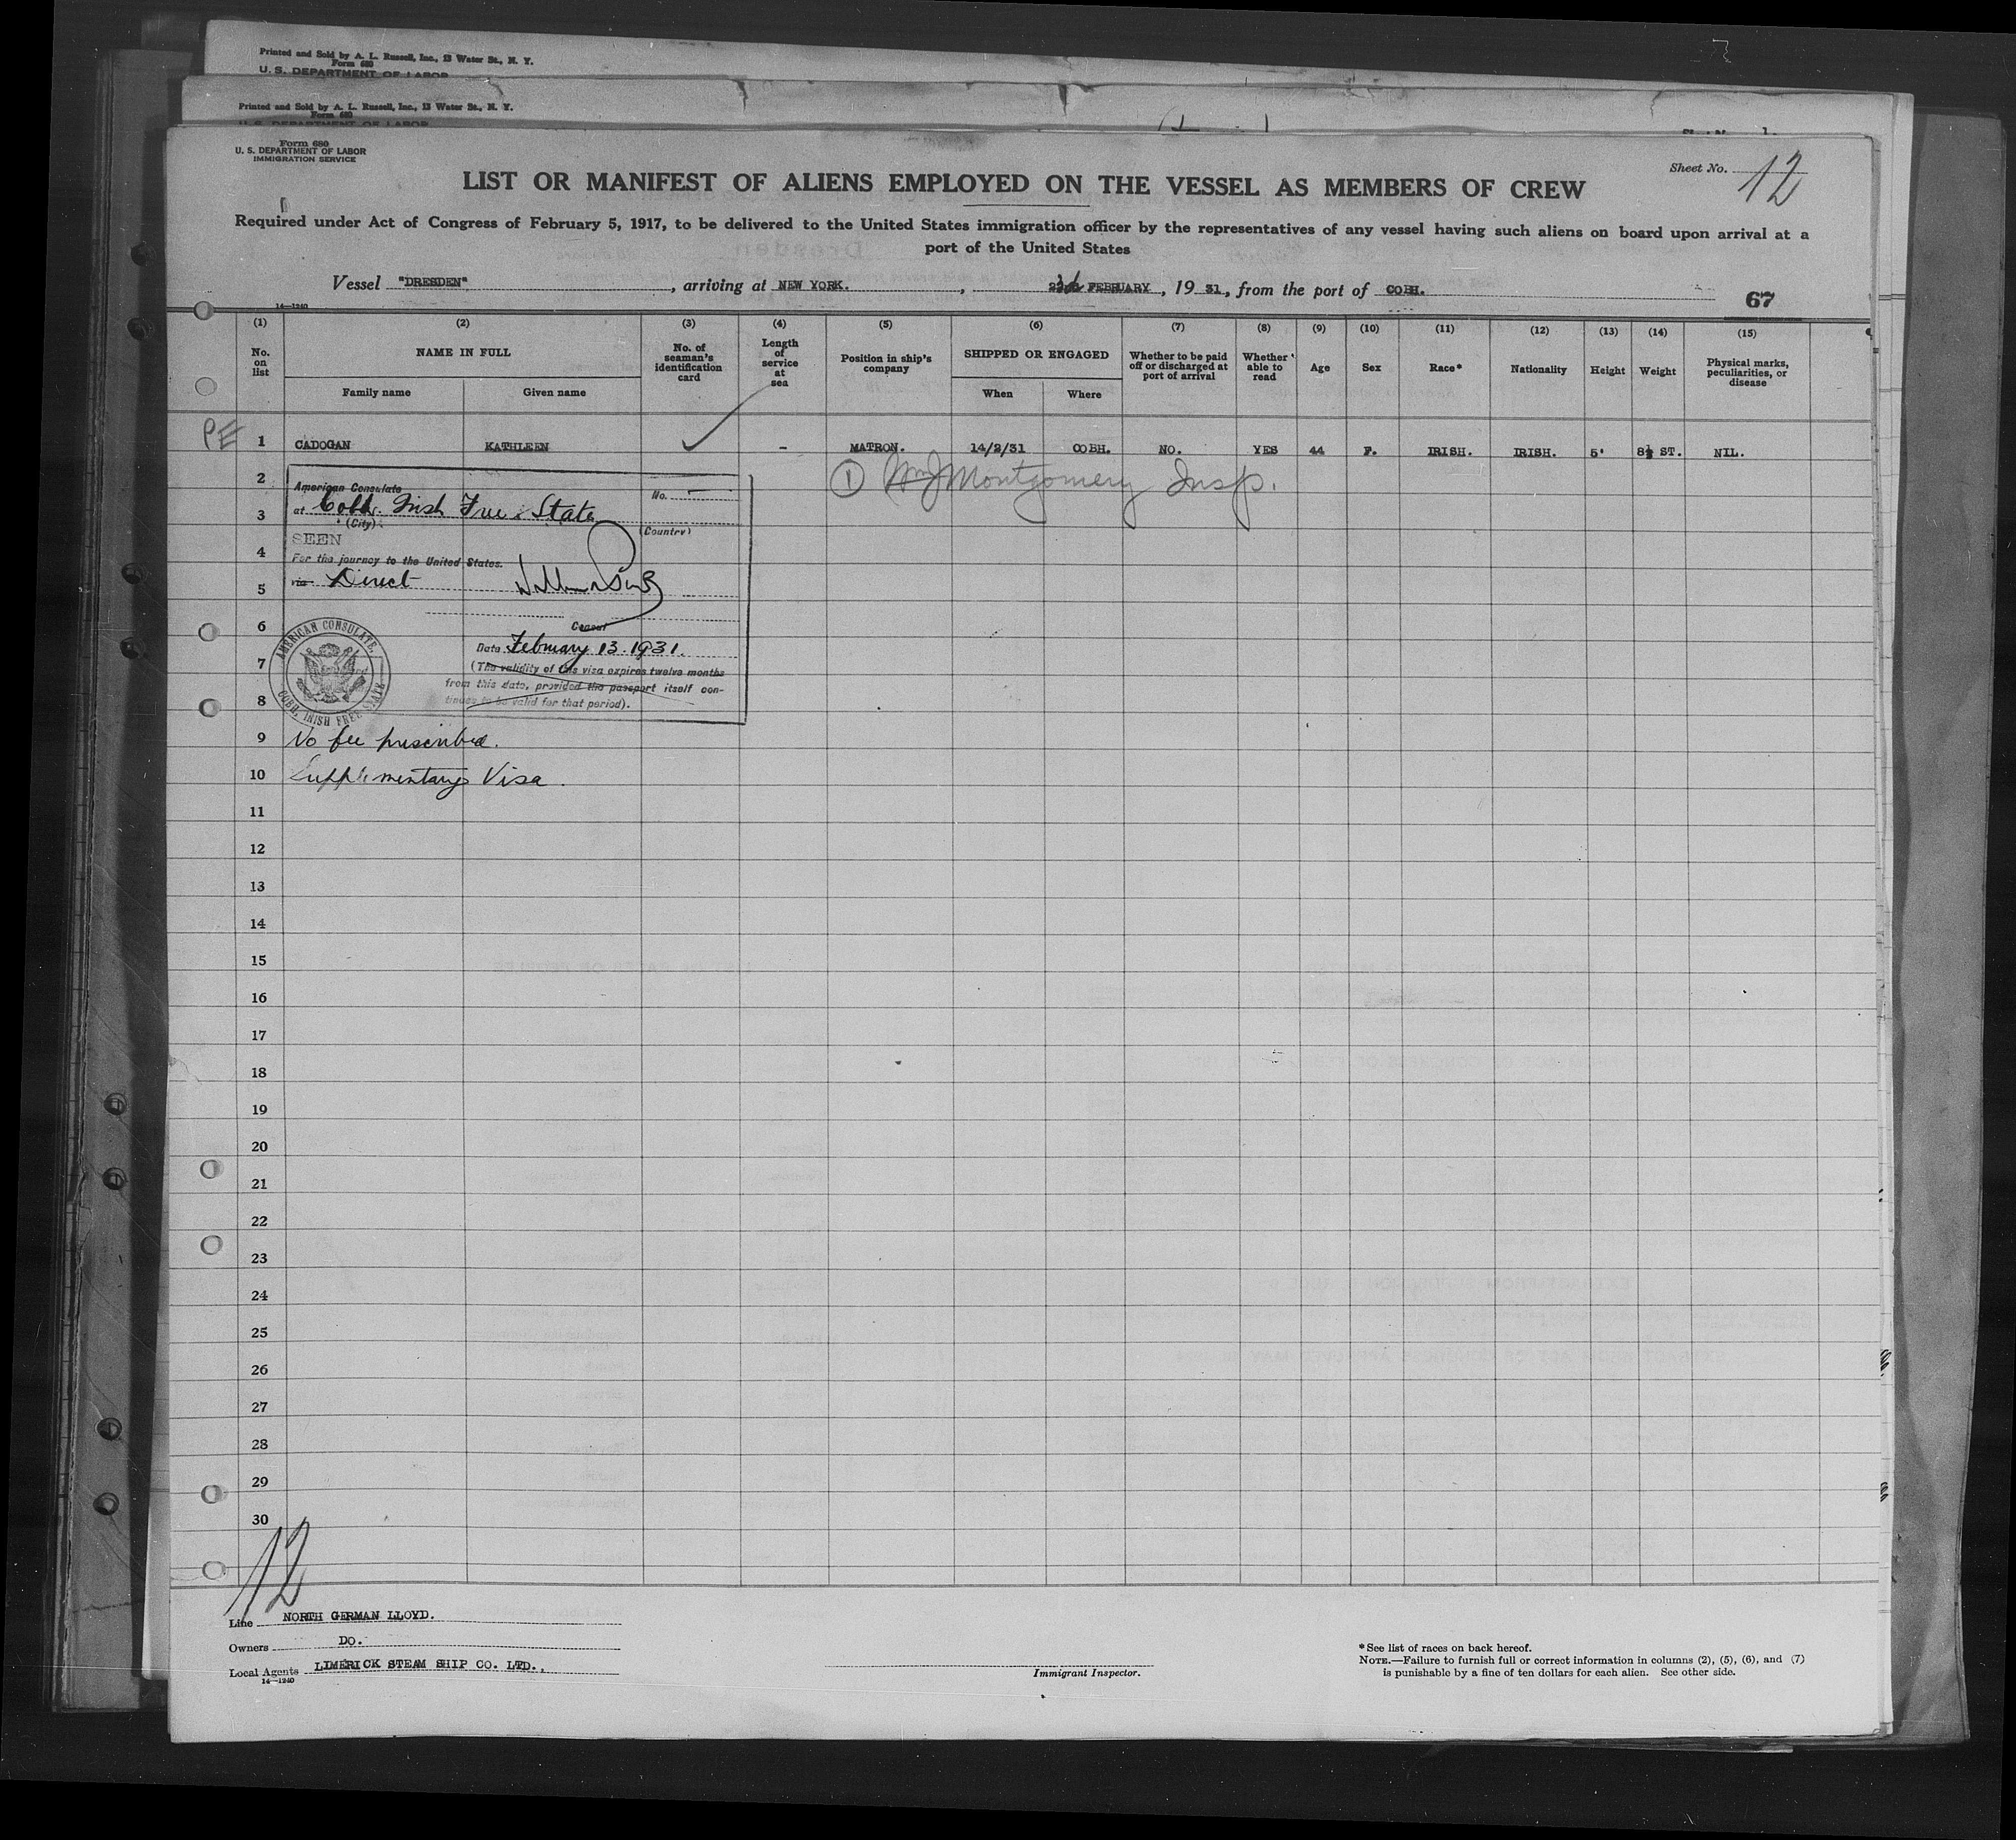 Printed and Sold by A. L. Russell, Inc., 13 Water St., N. Y.
Form 680
U. S. DEPARTMENT OF LABOR
Printed and Sold by A. L. Russell, Inc., 13 Water St., N. Y.
Form 680
U. S. DEPARTMENT OF LABOR
Form 680
U. S. DEPARTMENT OF LABOR
IMMIGRATION SERVICE
Sheet No. 12
LIST OR MANIFEST OF ALIENS EMPLOYED ON THE VESSEL AS MEMBERS OF CREW
Required under Act of Congress of February 5, 1917, to be delivered to the United States immigration officer by the representatives of any vessel having such aliens on board upon arrival at a
port of the United States
Vessel "DRESDEN", arriving at NEW YORK., FEBRUARY, 1931, from the port of COBH.
67
14—1240
(1) (2) (3) (4) (5) (6) (7) (8) (9) (10) (11) (12) (13) (14) (15)
No. on list
NAME IN FULL
Family name
Given name
No. of seaman's identification card
Length of service at sea
Position in ship's company
SHIPPED OR ENGAGED
When
Where
Whether to be paid off or discharged at port of arrival
Whether able to read
Age
Sex
Race*
Nationality
Height
Weight
Physical marks, peculiarities, or disease
PE 1 CADOGAN KATHLEEN – MATRON. 14/2/31 COBH. NO. YES 44 F. IRISH. IRISH. 5' 8½ ST. NIL.
1 Wm J Montgomery Insp.
2
3
4
5
6
7
8
American Consulate
No.
at Cobh. Irish Free State
(City)
(Country)
SEEN
For the journey to the United States.
via Direct
Consul
Date February 13. 1931.
(The validity of this visa expires twelve months
from this date, provided the passport itself con-
tinues to be valid for that period).
AMERICAN CONSULATE,
COBH, IRISH FREE STATE
9 No fee prescribed.
10 Supplementary Visa.
11
12
13
14
15
16
17
18
19
20
21
22
23
24
25
26
27
28
29
30
12
Line NORTH GERMAN LLOYD.
Owners DO.
Local Agents LIMERICK STEAM SHIP CO. LTD.,
14—1240
Immigrant Inspector.
*See list of races on back hereof.
NOTE.—Failure to furnish full or correct information in columns (2), (5), (6), and (7)
is punishable by a fine of ten dollars for each alien. See other side.